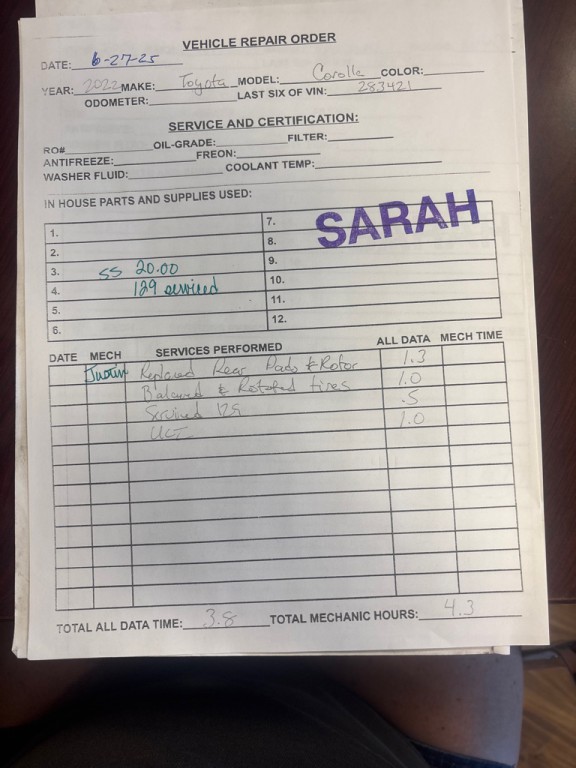 VEHICLE REPAIR ORDER
DATE: 6-27-25
YEAR: 2022 MAKE: Toyota MODEL: Corolla COLOR:
ODOMETER: LAST SIX OF VIN: 283421
SERVICE AND CERTIFICATION:
RO# OIL-GRADE: FILTER:
ANTIFREEZE: FREON:
WASHER FLUID: COOLANT TEMP:
IN HOUSE PARTS AND SUPPLIES USED:
SARAH
1. 7.
2. 8.
3. SS 20.00 9.
4. 129 serviced 10.
5. 11.
6. 12.
DATE MECH SERVICES PERFORMED ALL DATA MECH TIME
Justin Replaced Rear Pads & Rotor 1.3
Balanced & Rotated tires 1.0
Serviced .5
1.0
TOTAL ALL DATA TIME: 3.8 TOTAL MECHANIC HOURS: 4.3